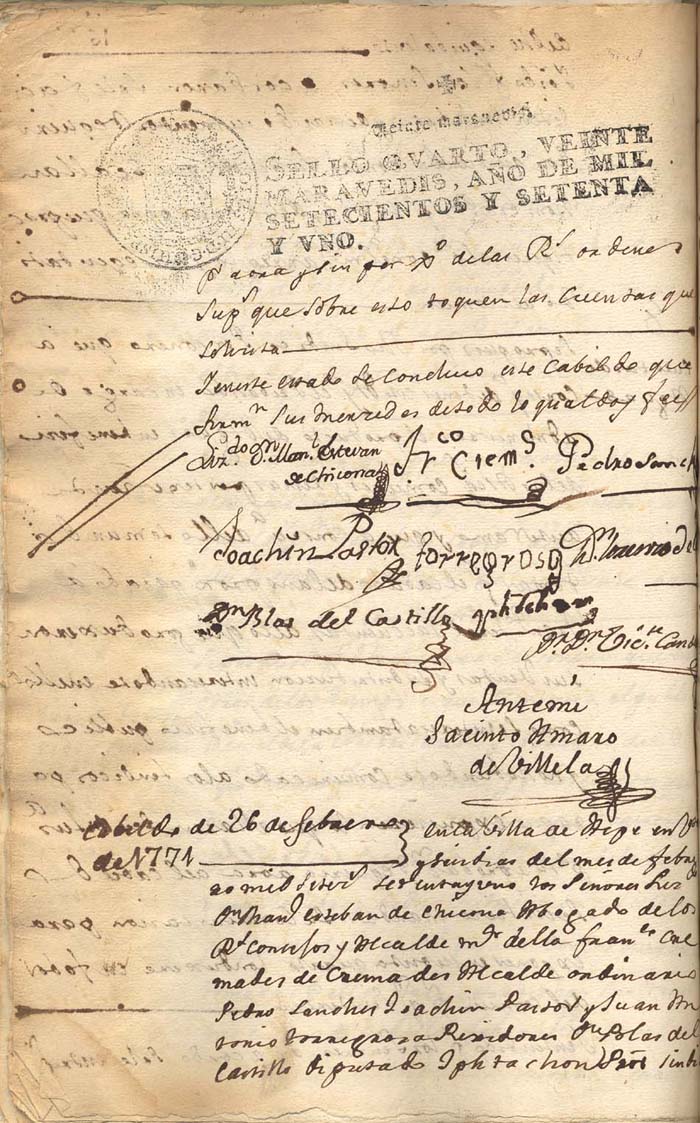 Veinte maravedis
SELLO QVARTO, VEINTE
MARAVEDIS, AÑO DE MIL
SETECIENTOS Y SETENTA
Y VNO.
de las Rs ordenes
Sups que sobre esto toquen las Cuentas que
solicita
Y en este estado se concluió este Cabildo que
firmn sus mercedes de todo lo qual doy fee
Lizdo Dn Manl Estevan
de Chicona
Frco Crems
Pedro Sanch
Joachin Pastor
torregrosa
Dn Blas del Castillo
Antemi
Jacinto Amaro
de Villela
Cabildo de 26 de febrero
de 1771
en la Villa de Aspe en
y seis dias del mes de febre
ro mil setecs setenta y uno los Señores Liz
Dn Manl Esteban de Chicona Abogado de los
Rs Consejos y Alcalde mr de ella Franco Cre
mades de Cremades Alcalde ordinario
Pedro Sanches Joachin Pastor y Juan An
tonio torregrosa Rexidores Dn Blas del
Castillo Diputado Jph